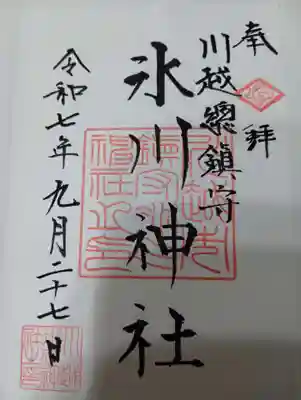 奉拝
川越總鎮守
氷川神社
令和七年九月二十七日